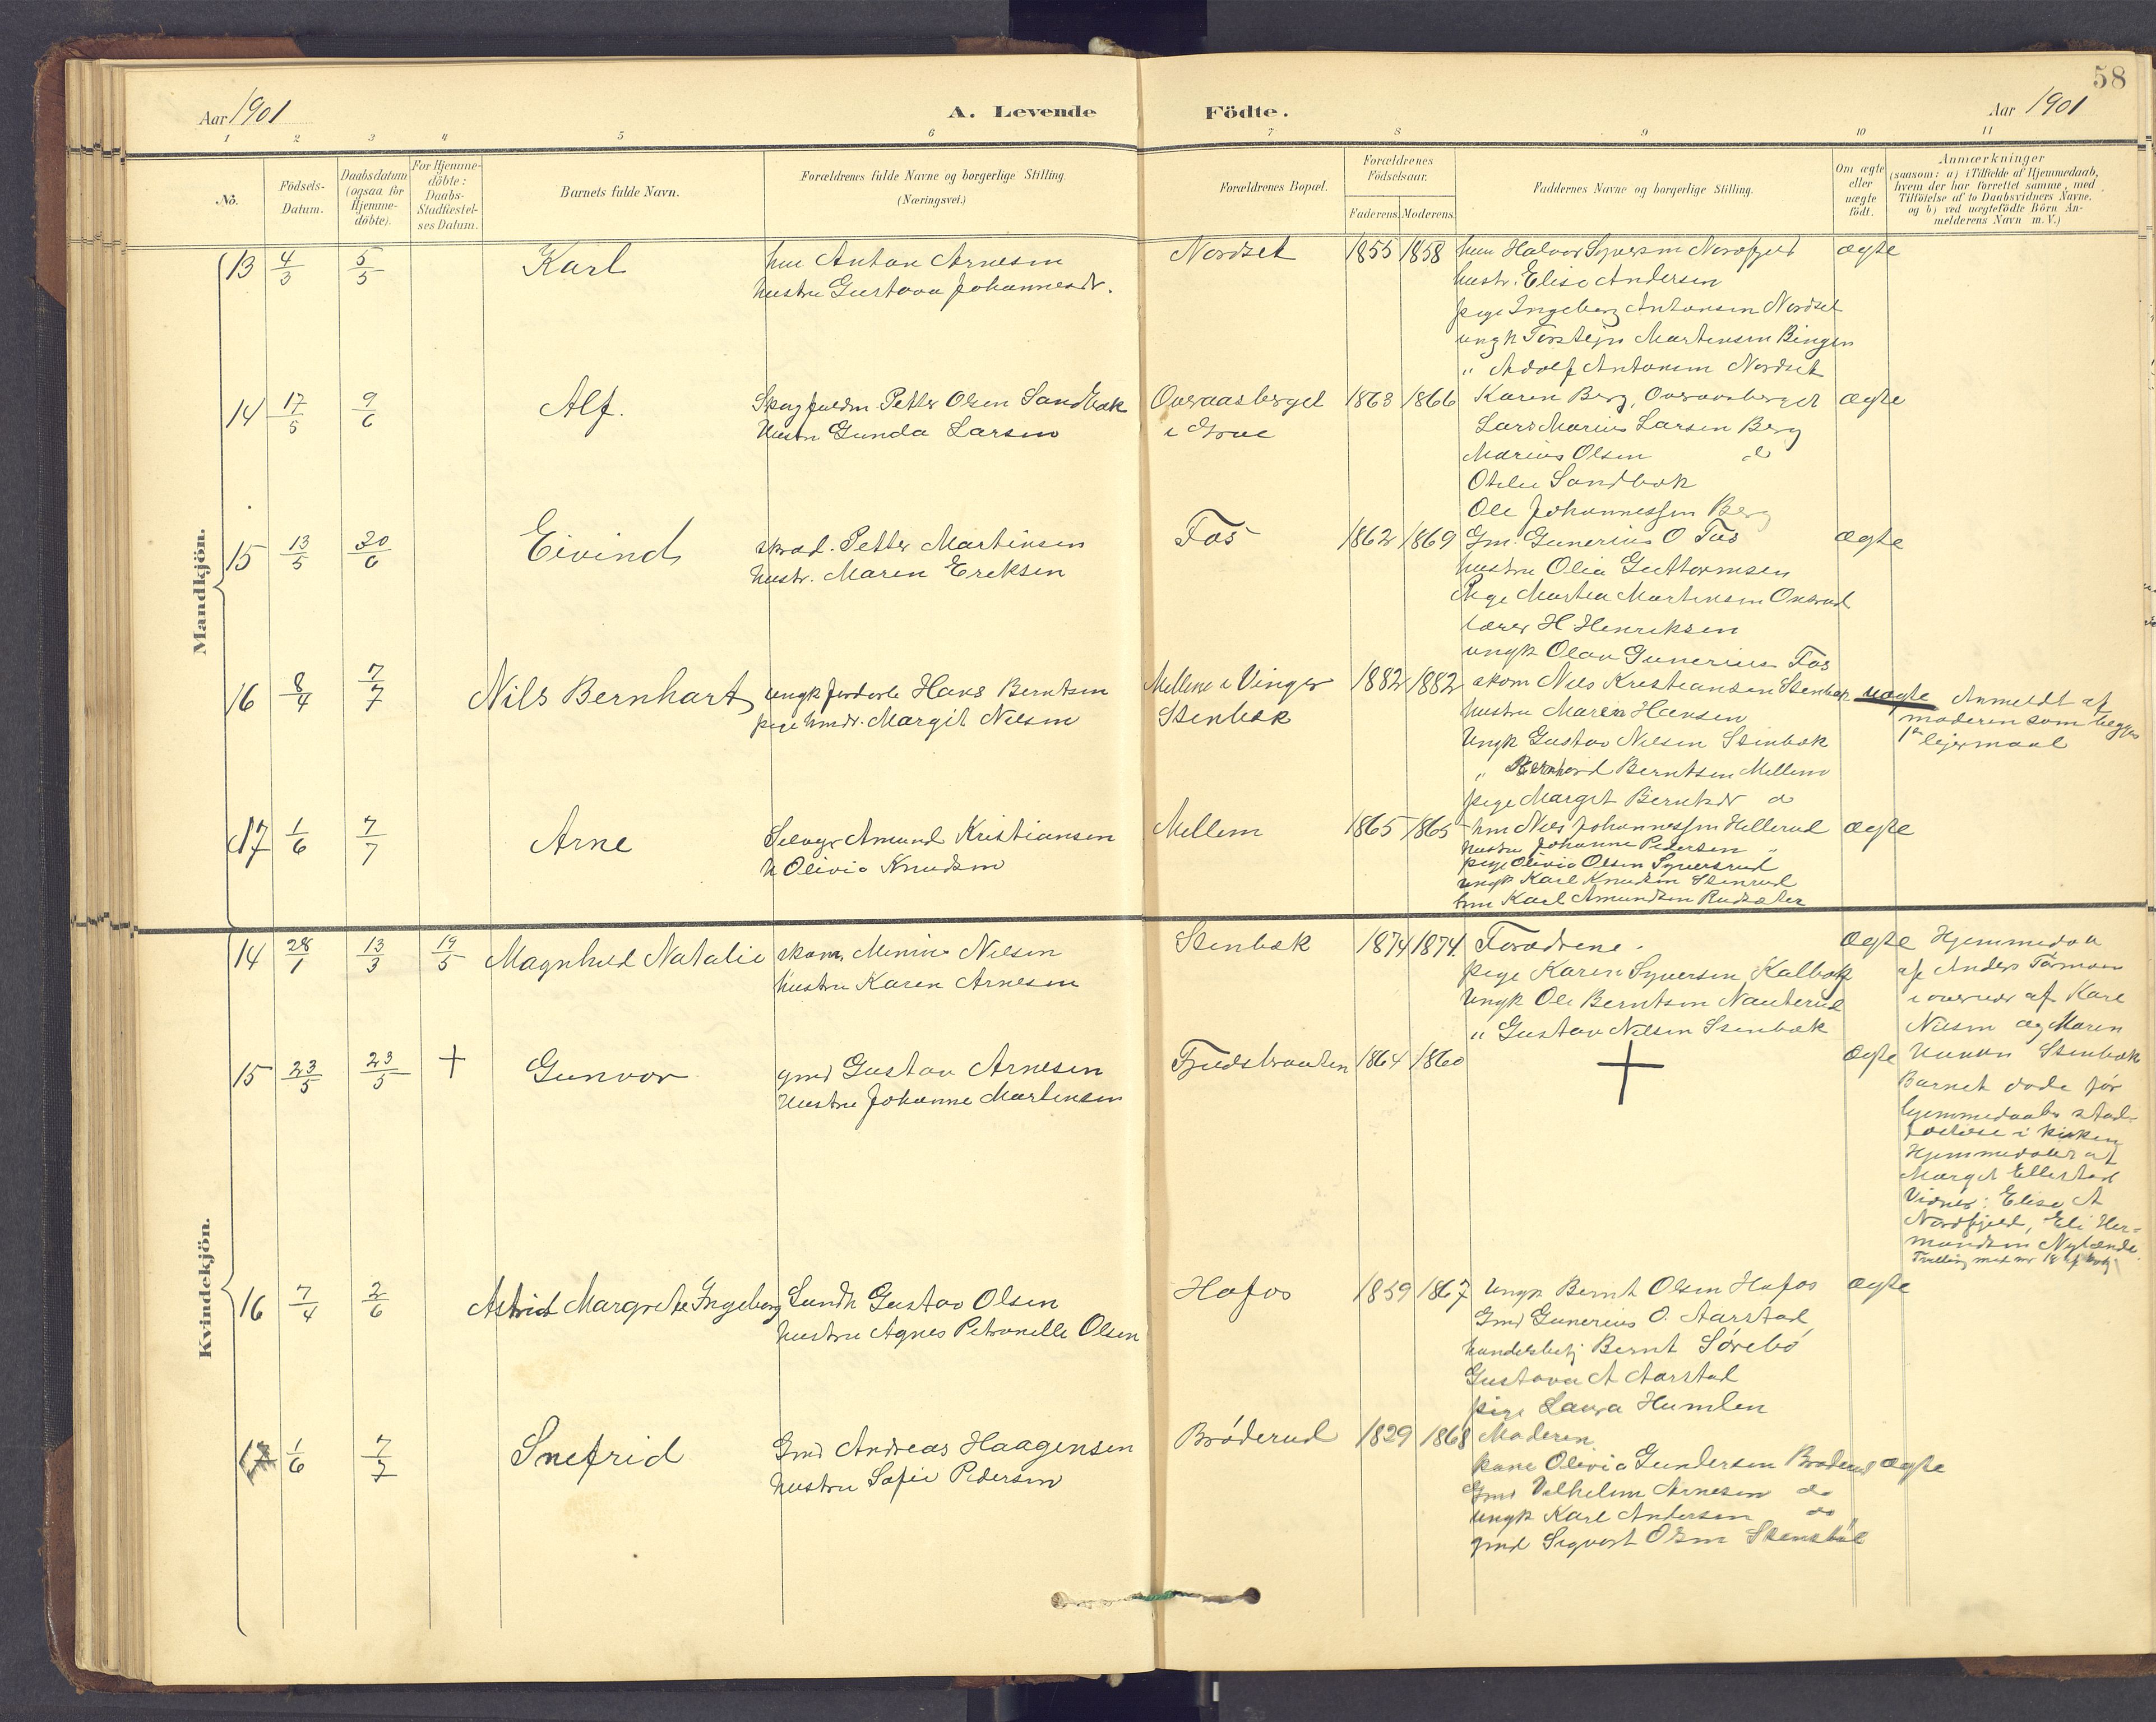 58
Aar 1901
A. Levende Födte.
Aar 1901
1 2 3 4 5 6 7 8 9 10 11
No.
Födsels-Datum.
Daabsdatum (ogsaa for Hjemme-döbte).
For Hjemme-döbte: Daabs-Stadfæstel-ses Datum.
Barnets fulde Navn.
Forældrenes fulde Navne og borgerlige Stilling. (Næringsvei.)
Forældrenes Bopæl.
Forældrenes Födselsaar.
Faderens. Moderens.
Faddernes Navne og borgerlige Stilling.
Om ægte eller uægte födt.
Anmærkninger
(saasom: a) i Tilfælde af Hjemmedaab, hvem der har forrettet samme, med Tilföielse af to Daabsvidners Navne, og b) ved uægtefödte Börn An-melderens Navn m. V.)
Mandkjön.
13 4/3 5/5 Karl
hm Anton Arnesen
hustru Gustava Johannesdr.
Nordset 1855 1858
hm Halvor Syversen Nordfjeld
hustr. Elise Andersen
pige Ingeborg Antonsen Nordset
ungk Torstejn Martinsen Bingen
" Adolf Antonsen Nordset
ægte
14 17/5 9/6 Alf.
Petter Olsen Sandbæk
Hustru Gunda Larsen
Overaasberget
i Grue
1863 1866
Karen Berg, Overaasberget
Lars Marius Larsen Berg
Marius Olsen do
Otilie Sandbæk
Ole Johannessen Berg
ægte
15 13/5 30/6 Eivind
Petter Martinsen
hustr. Maren Eriksen
Fos 1862 1869
Gm. Gunerius O Fos
hustru Olia Guttormsen
Pige Martea Martinsen
lærer H Henriksen
ungk Olav Gunerius Fos
ægte
16 8/4 7/7 Nils Bernhart
ungk Hans Berntsen
pige Margit Nilsen
Mellem i Vinger
Stenbæk
1882 1882
skom Nils Kristiansen Stenbæk
hustru Maren Hansen
Ungk Gustav Nilsen Stenbæk
" Bernhard Berntsen Mellem
pige Margit Berntsdr do
uægte
Anmeldt af
moderen som begges
1ste lejermaal
17 1/6 7/7 Arne
Selvejer Amund Kristiansen
h Olivia Knudsen
Mellem 1865 1865
hm Nils Johannessen Hellerud
hustru Johanne Pedersen "
pige Olivia Olsen Syversrud
ungk Karl Knudsen Stenrud
hm Karl Amundsen Rudsæter
ægte
Kvindekjön.
14 28/1 13/3 19/5 Magnhild Natalie
skom. Nilsen
hustru Karen Arnesen
Stenbæk 1874 1874
Forældrene.
pige Karen Syversen Kalbæk
Ungk Ole Berntsen Nauterud
" Gustav Nilsen Stenbæk
ægte
Hjemmedøbt
af Anders
i overvær af Karl
Nilsen og Maren
Stenbæk
15 23/5 23/5 + Gunvor
gmd Gustav Arnesen
Hustru Johanne Martinsen
1864 1860
+
ægte
Barnet døde før
hjemmedaabs stad-
fæstelse i kirken
Hjemmedøbt af
Margit Ellestad
Vidner: Elise A
Nordfjeld, Eli Her-
mundsen Nylænde
16 7/4 2/6 Astrid Margrethe Ingeborg
Landh Gustav Olsen
hustru Agnes Petronelle Olsen
Hofos 1859 1867
Ungk Bernt Olsen Hofos
Gmd Gunerius O. Aarstad
handelsbetj Bernt Sörebö
Gustava A Aarstad
pige Laura Humlen
ægte
17 1/6 7/7 Snefrid
Gmd Andreas Haagensen
hustru Sofie Pedersen
Bröderud 1829 1868
Moderen
kone Olivia Gundersen Bröderud
Gmd Vilhelm Arnesen do
ungk Karl Andersen do
gmd Sigvart Olsen
ægte